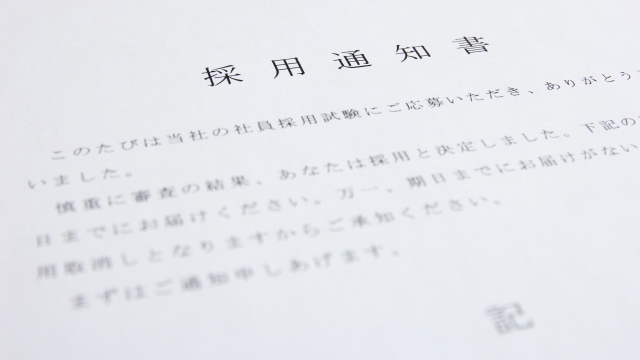 採用通知書
このたびは当社の社員採用試験にご応募いただき、ありがとうご
いました。
慎重に審査の結果、あなたは採用と決定しました。下記の
日までにお届けください。万一、期日までにお届けがない
用取消しとなりますからご承知ください。
まずはご通知申しあげます。
記